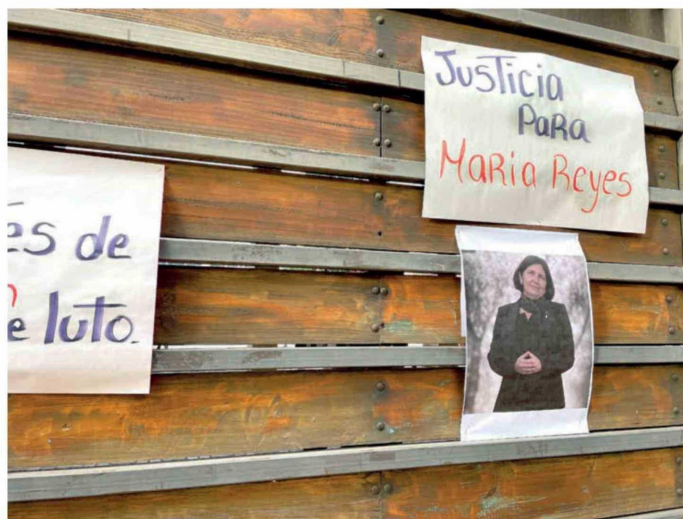 Justicia
PaRa
MaRia Reyes
es de
e luto.